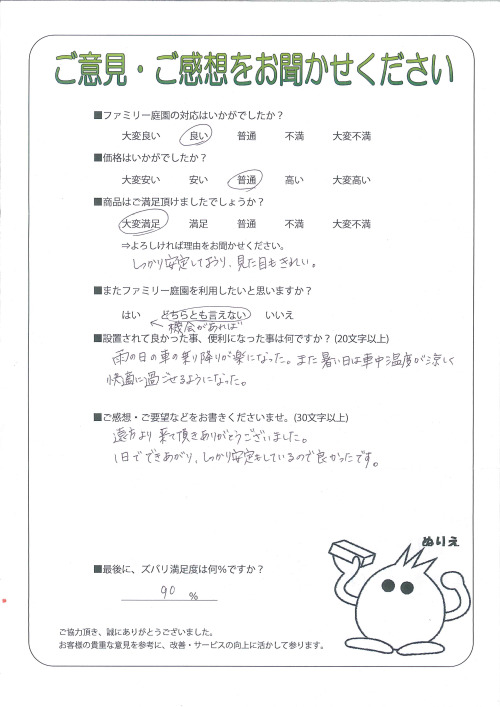 ご意見・ご感想をお聞かせください
■ファミリー庭園の対応はいかがでしたか？
大変良い 良い 普通 不満 大変不満
■価格はいかがでしたか？
大変安い 安い 普通 高い 大変高い
■商品はご満足頂けましたでしょうか？
大変満足 満足 普通 不満 大変不満
⇒よろしければ理由をお聞かせください。
しっかり安定しており、見た目もきれい。
■またファミリー庭園を利用したいと思いますか？
はい どちらとも言えない いいえ
機会があれば
■設置されて良かった事、便利になった事は何ですか？(20文字以上)
雨の日の車の乗り降りが楽になった。また暑い日は車中温度が涼しく
快適に過ごせるようになった。
■ご感想・ご要望などをお書きくださいませ。(30文字以上)
遠方より来て頂きありがとうございました。
1日でできあがり、しっかり安定もしているので良かったです。
ぬりえ
■最後に、ズバリ満足度は何％ですか？
90 %
ご協力頂き、誠にありがとうございました。
お客様の貴重な意見を参考に、改善・サービスの向上に活かして参ります。